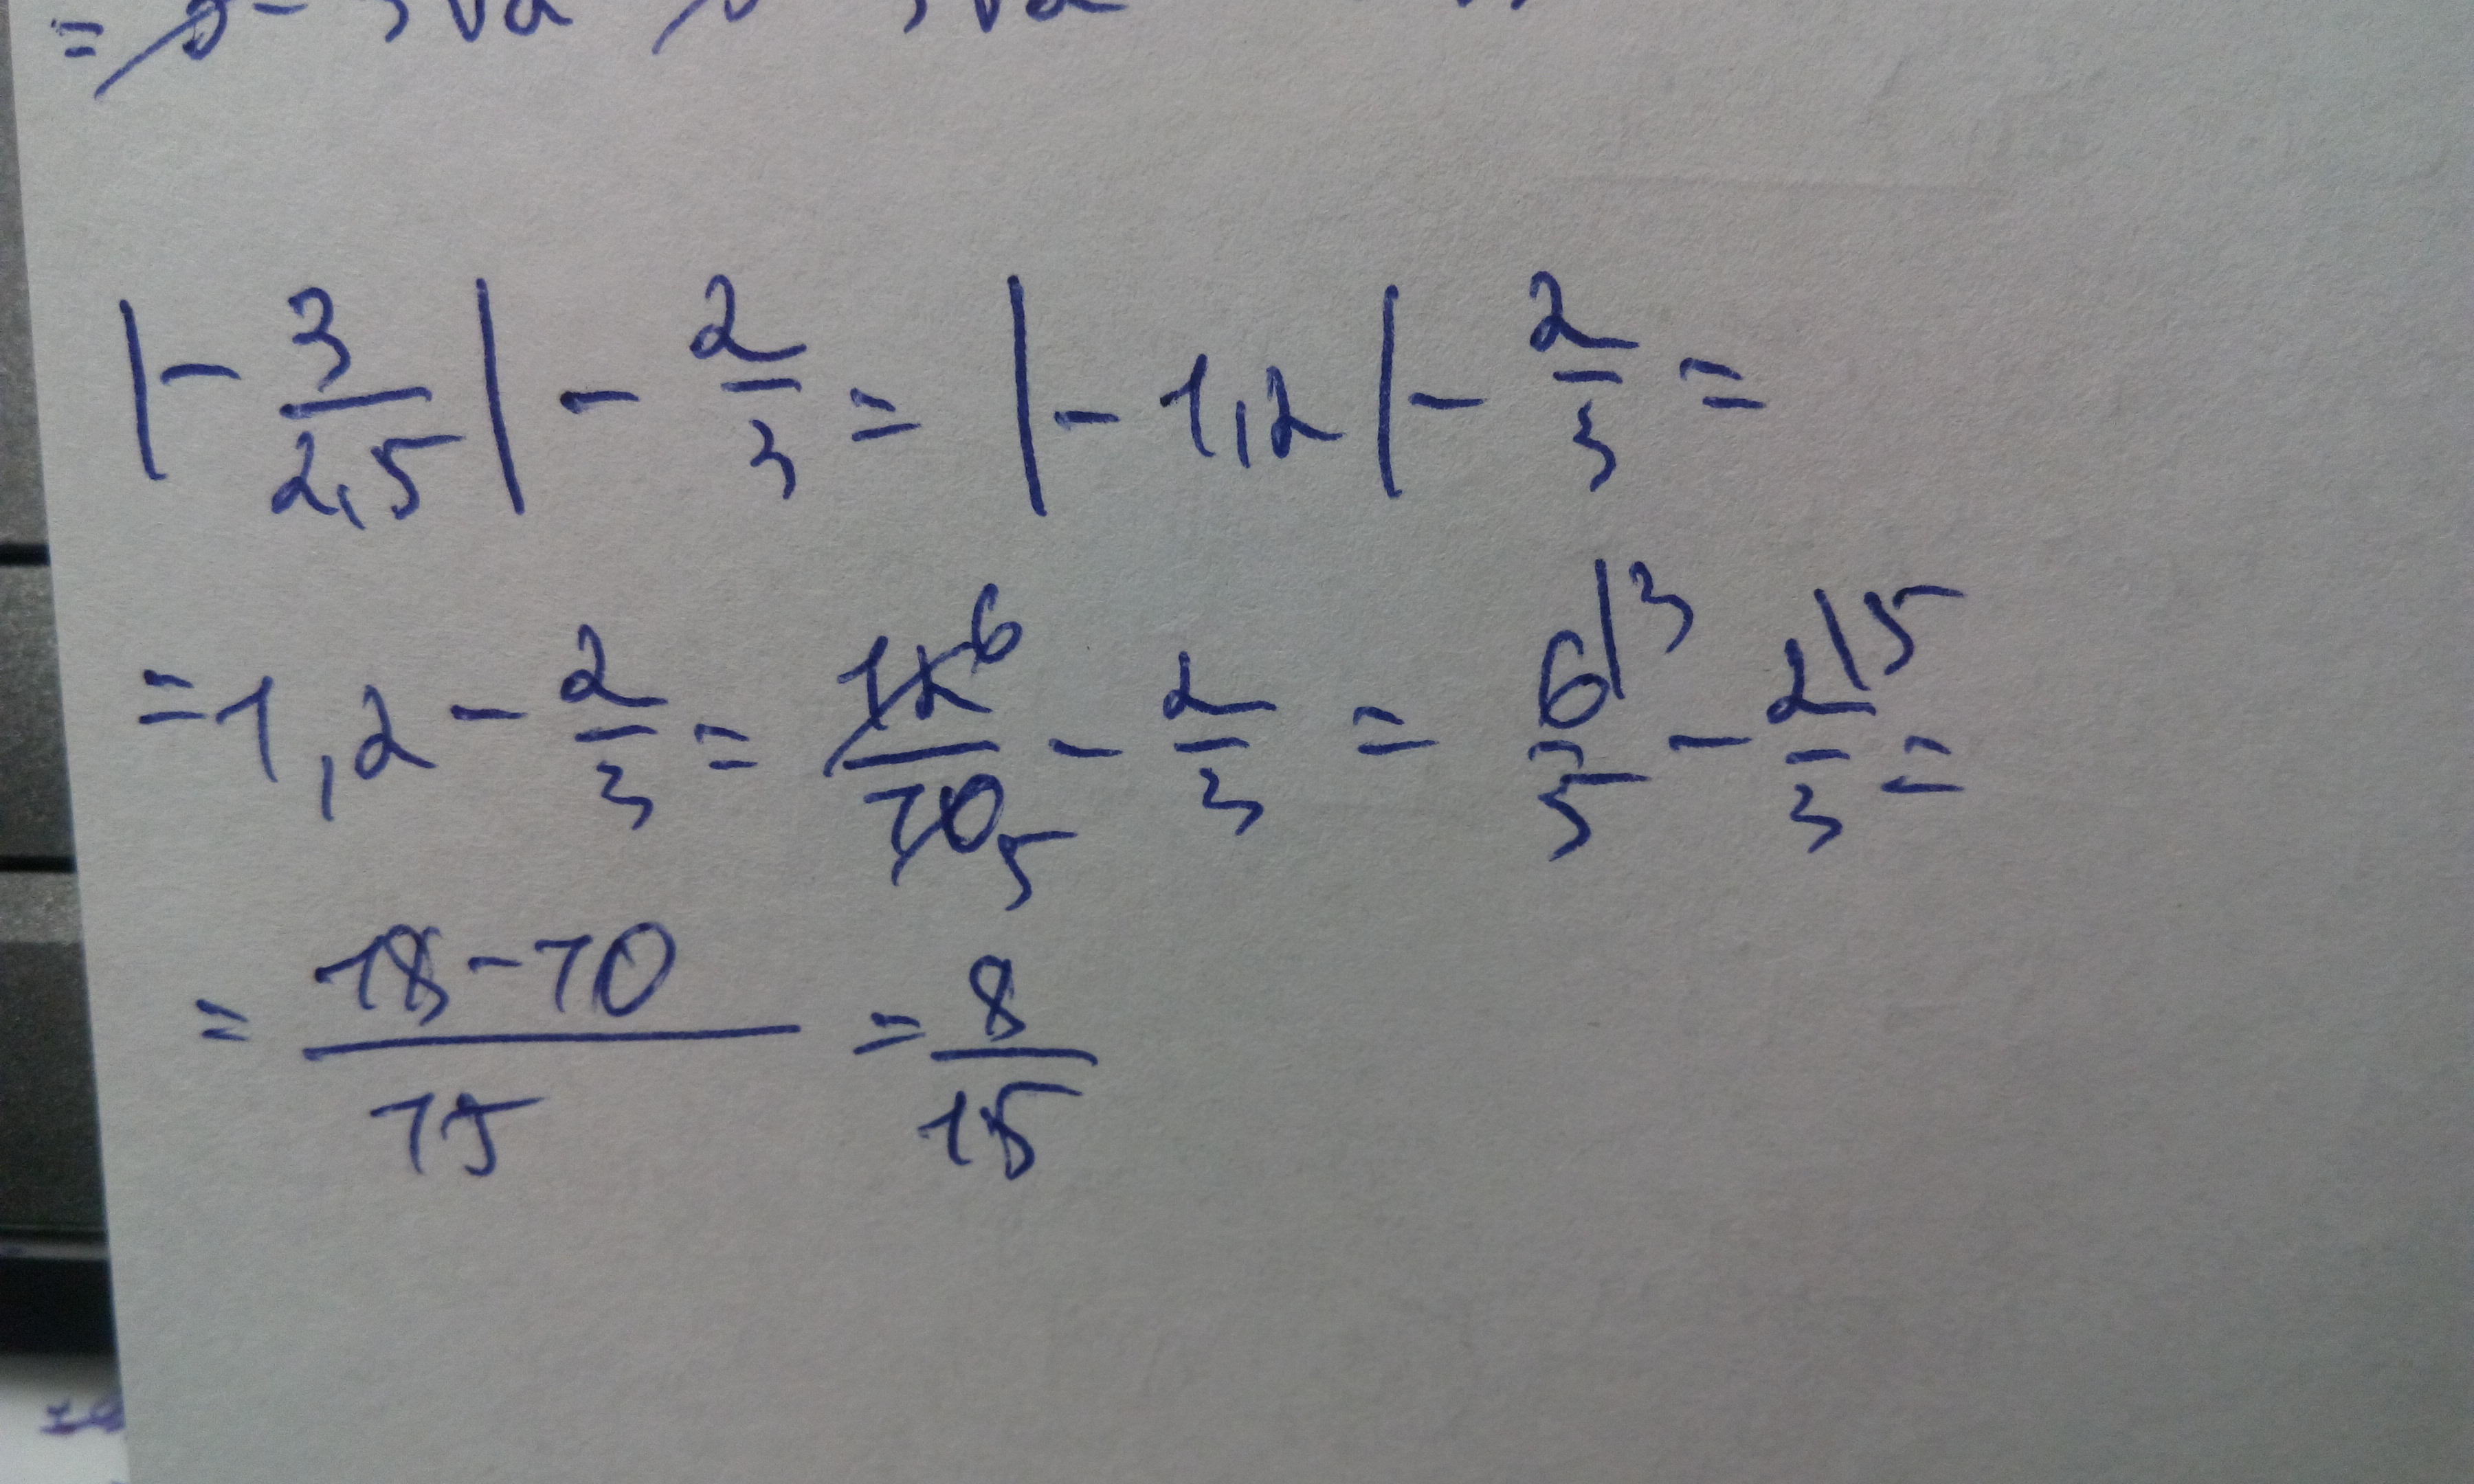 |-3/2,5| - 2/3 = |-1,2| - 2/3 =
= 1,2 - 2/3 = 12 6/10 5 - 2/3 = 6|3/5 - 2|5/3 =
= 18-10/15 = 8/15